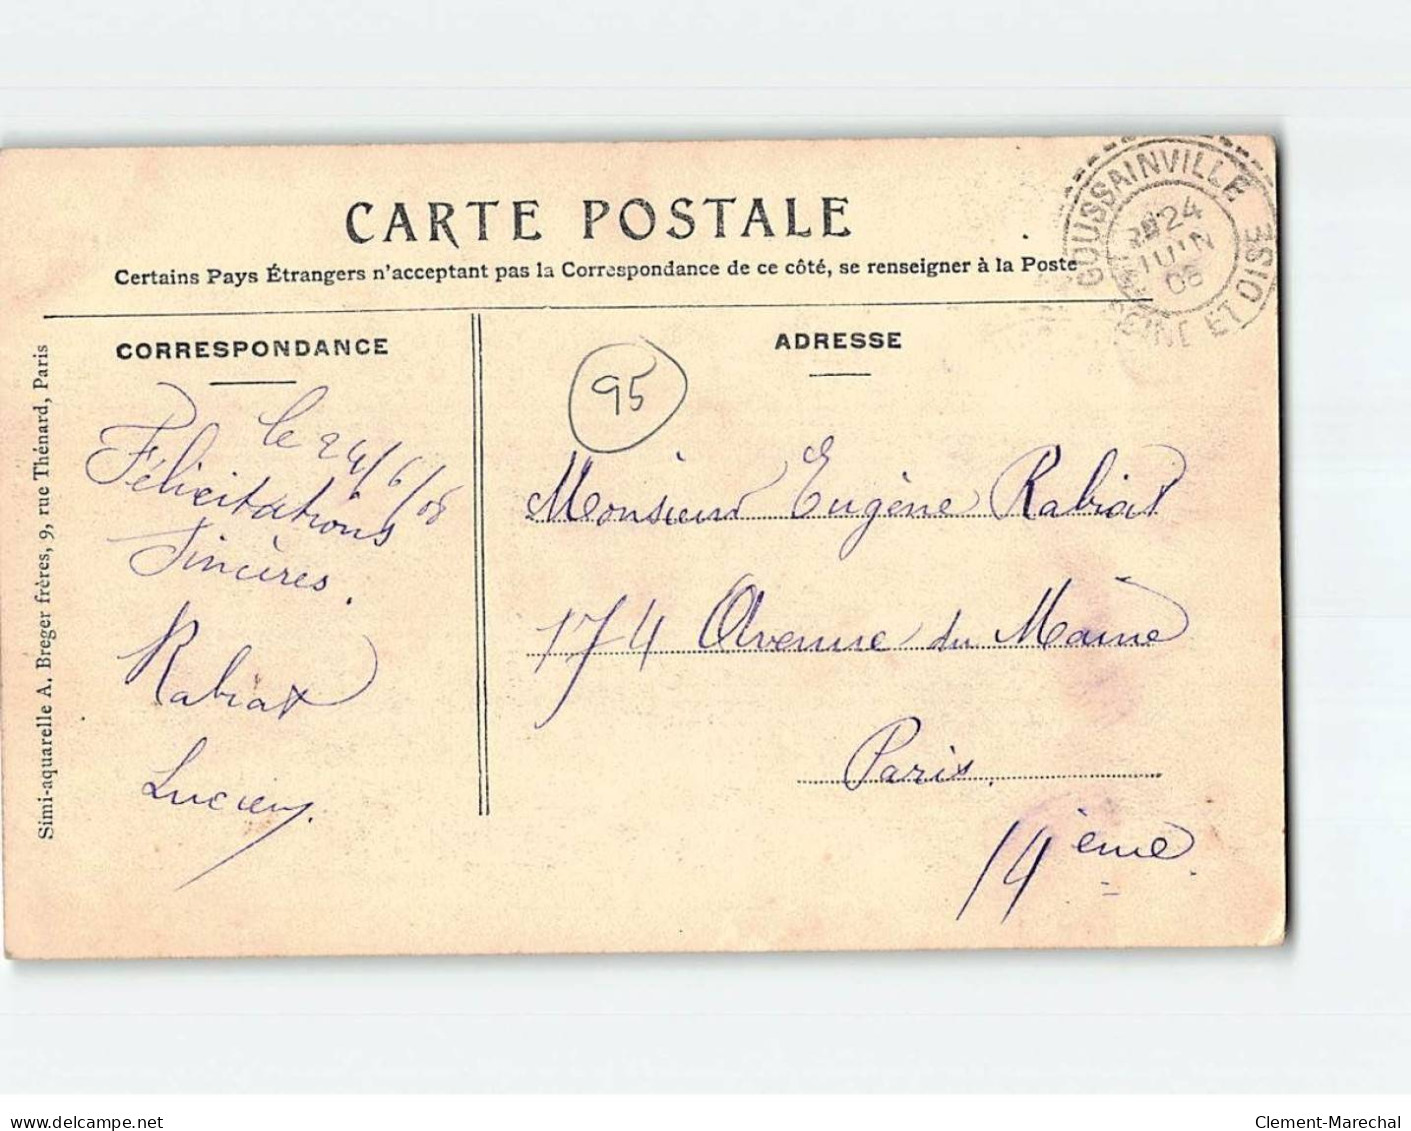 CARTE POSTALE
Certains Pays Étrangers n'acceptant pas la Correspondance de ce côté, se renseigner à la Poste
GOUSSAINVILLE
24
JUIN
SEINE ET OISE
CORRESPONDANCE
ADRESSE
95
le 24/6/08
Félicitations
Sincères.
Rabiat
Lucien.
Monsieur Eugène Rabiat
174 Avenue du Maine
Paris.
14ème
Simi-aquarelle A. Breger frères, 9, rue Thénard, Paris
www.delcampe.net
Clement-Marechal